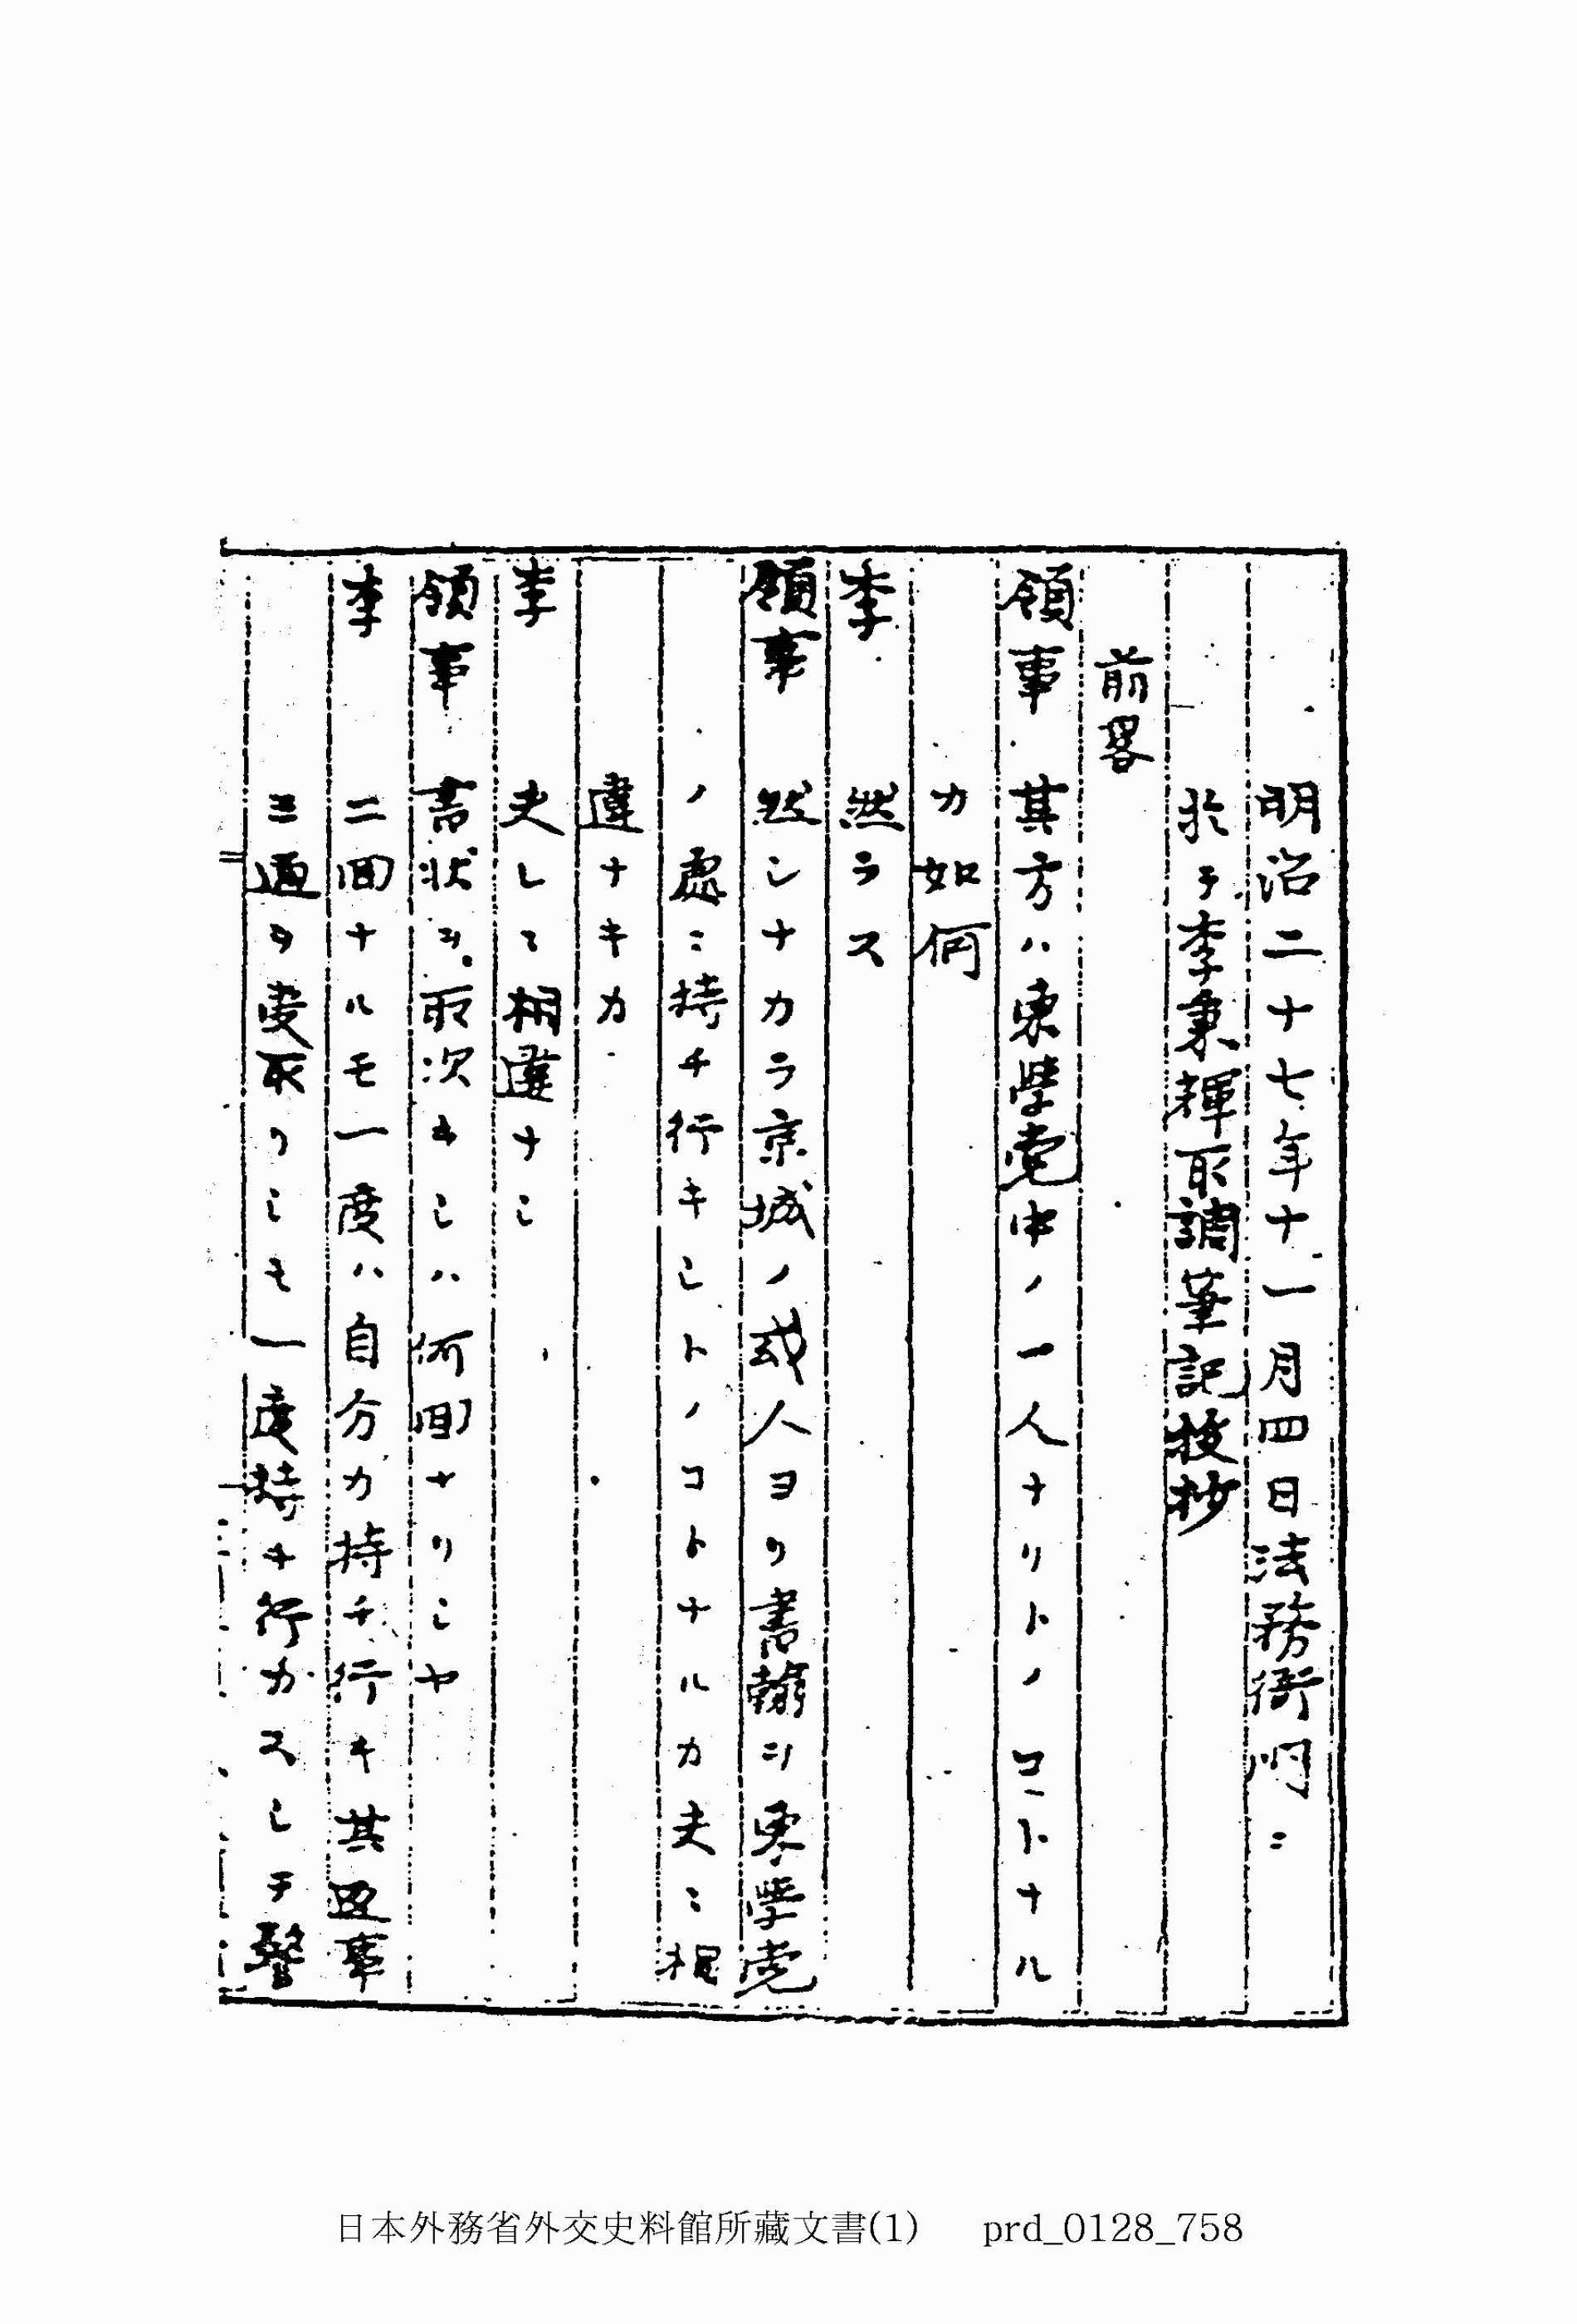 明治二十七年十一月四日法務衙門ニ
於テ李秉輝取調筆記抜抄
前畧
領事 其方ハ東学党中ノ一人ナリトノコトナル
カ如何
李 然ラス
領事 然シナカラ京城ノ或人ヨリ書翰ヲ東学党
ノ處ニ持チ行キシトノコトナルカ夫ニ相
違ナキカ
李 夫レニ相違ナシ
領事 書状ヲ取次キシハ何回ナリシヤ
李 二回ナルモ一度ハ自分カ持チ行キ其五事
三通ヲ受取リシモ一度持チ行カスシテ
日本外務省外交史料館所藏文書(1) prd_0128_758